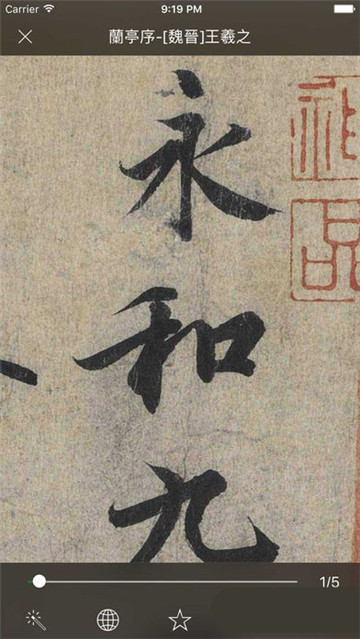 Carrier 9:19 PM
蘭亭序-[魏晉]王羲之
永和九
1/5